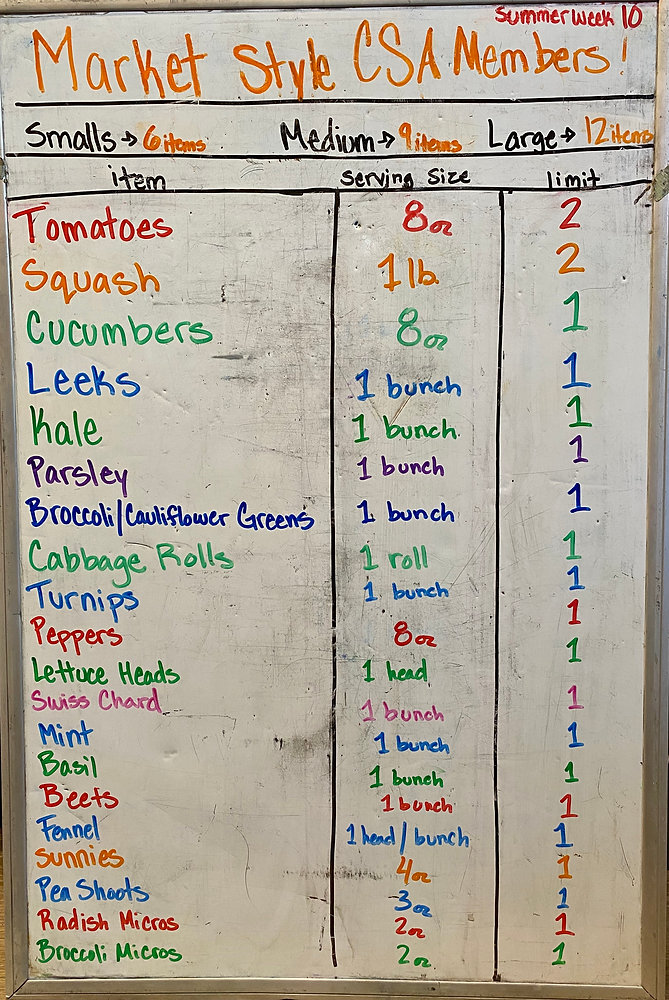 Summer Week 10
Market Style CSA Members!
Smalls → 6 items Medium → 9 items Large → 12 items
item serving size limit
Tomatoes 8oz 2
Squash 1 lb. 2
Cucumbers 8oz 1
Leeks 1 bunch 1
Kale 1 bunch. 1
Parsley 1 bunch 1
Broccoli/Cauliflower Greens 1 bunch 1
Cabbage Rolls 1 roll 1
Turnips 1 bunch 1
Peppers 8oz 1
Lettuce Heads 1 head 1
Swiss Chard 1 bunch 1
Mint 1 bunch 1
Basil 1 bunch 1
Beets 1 bunch 1
Fennel 1 head / bunch 1
Sunnies 4oz 1
Pea Shoots 3oz 1
Radish Micros 2oz 1
Broccoli Micros 2oz 1